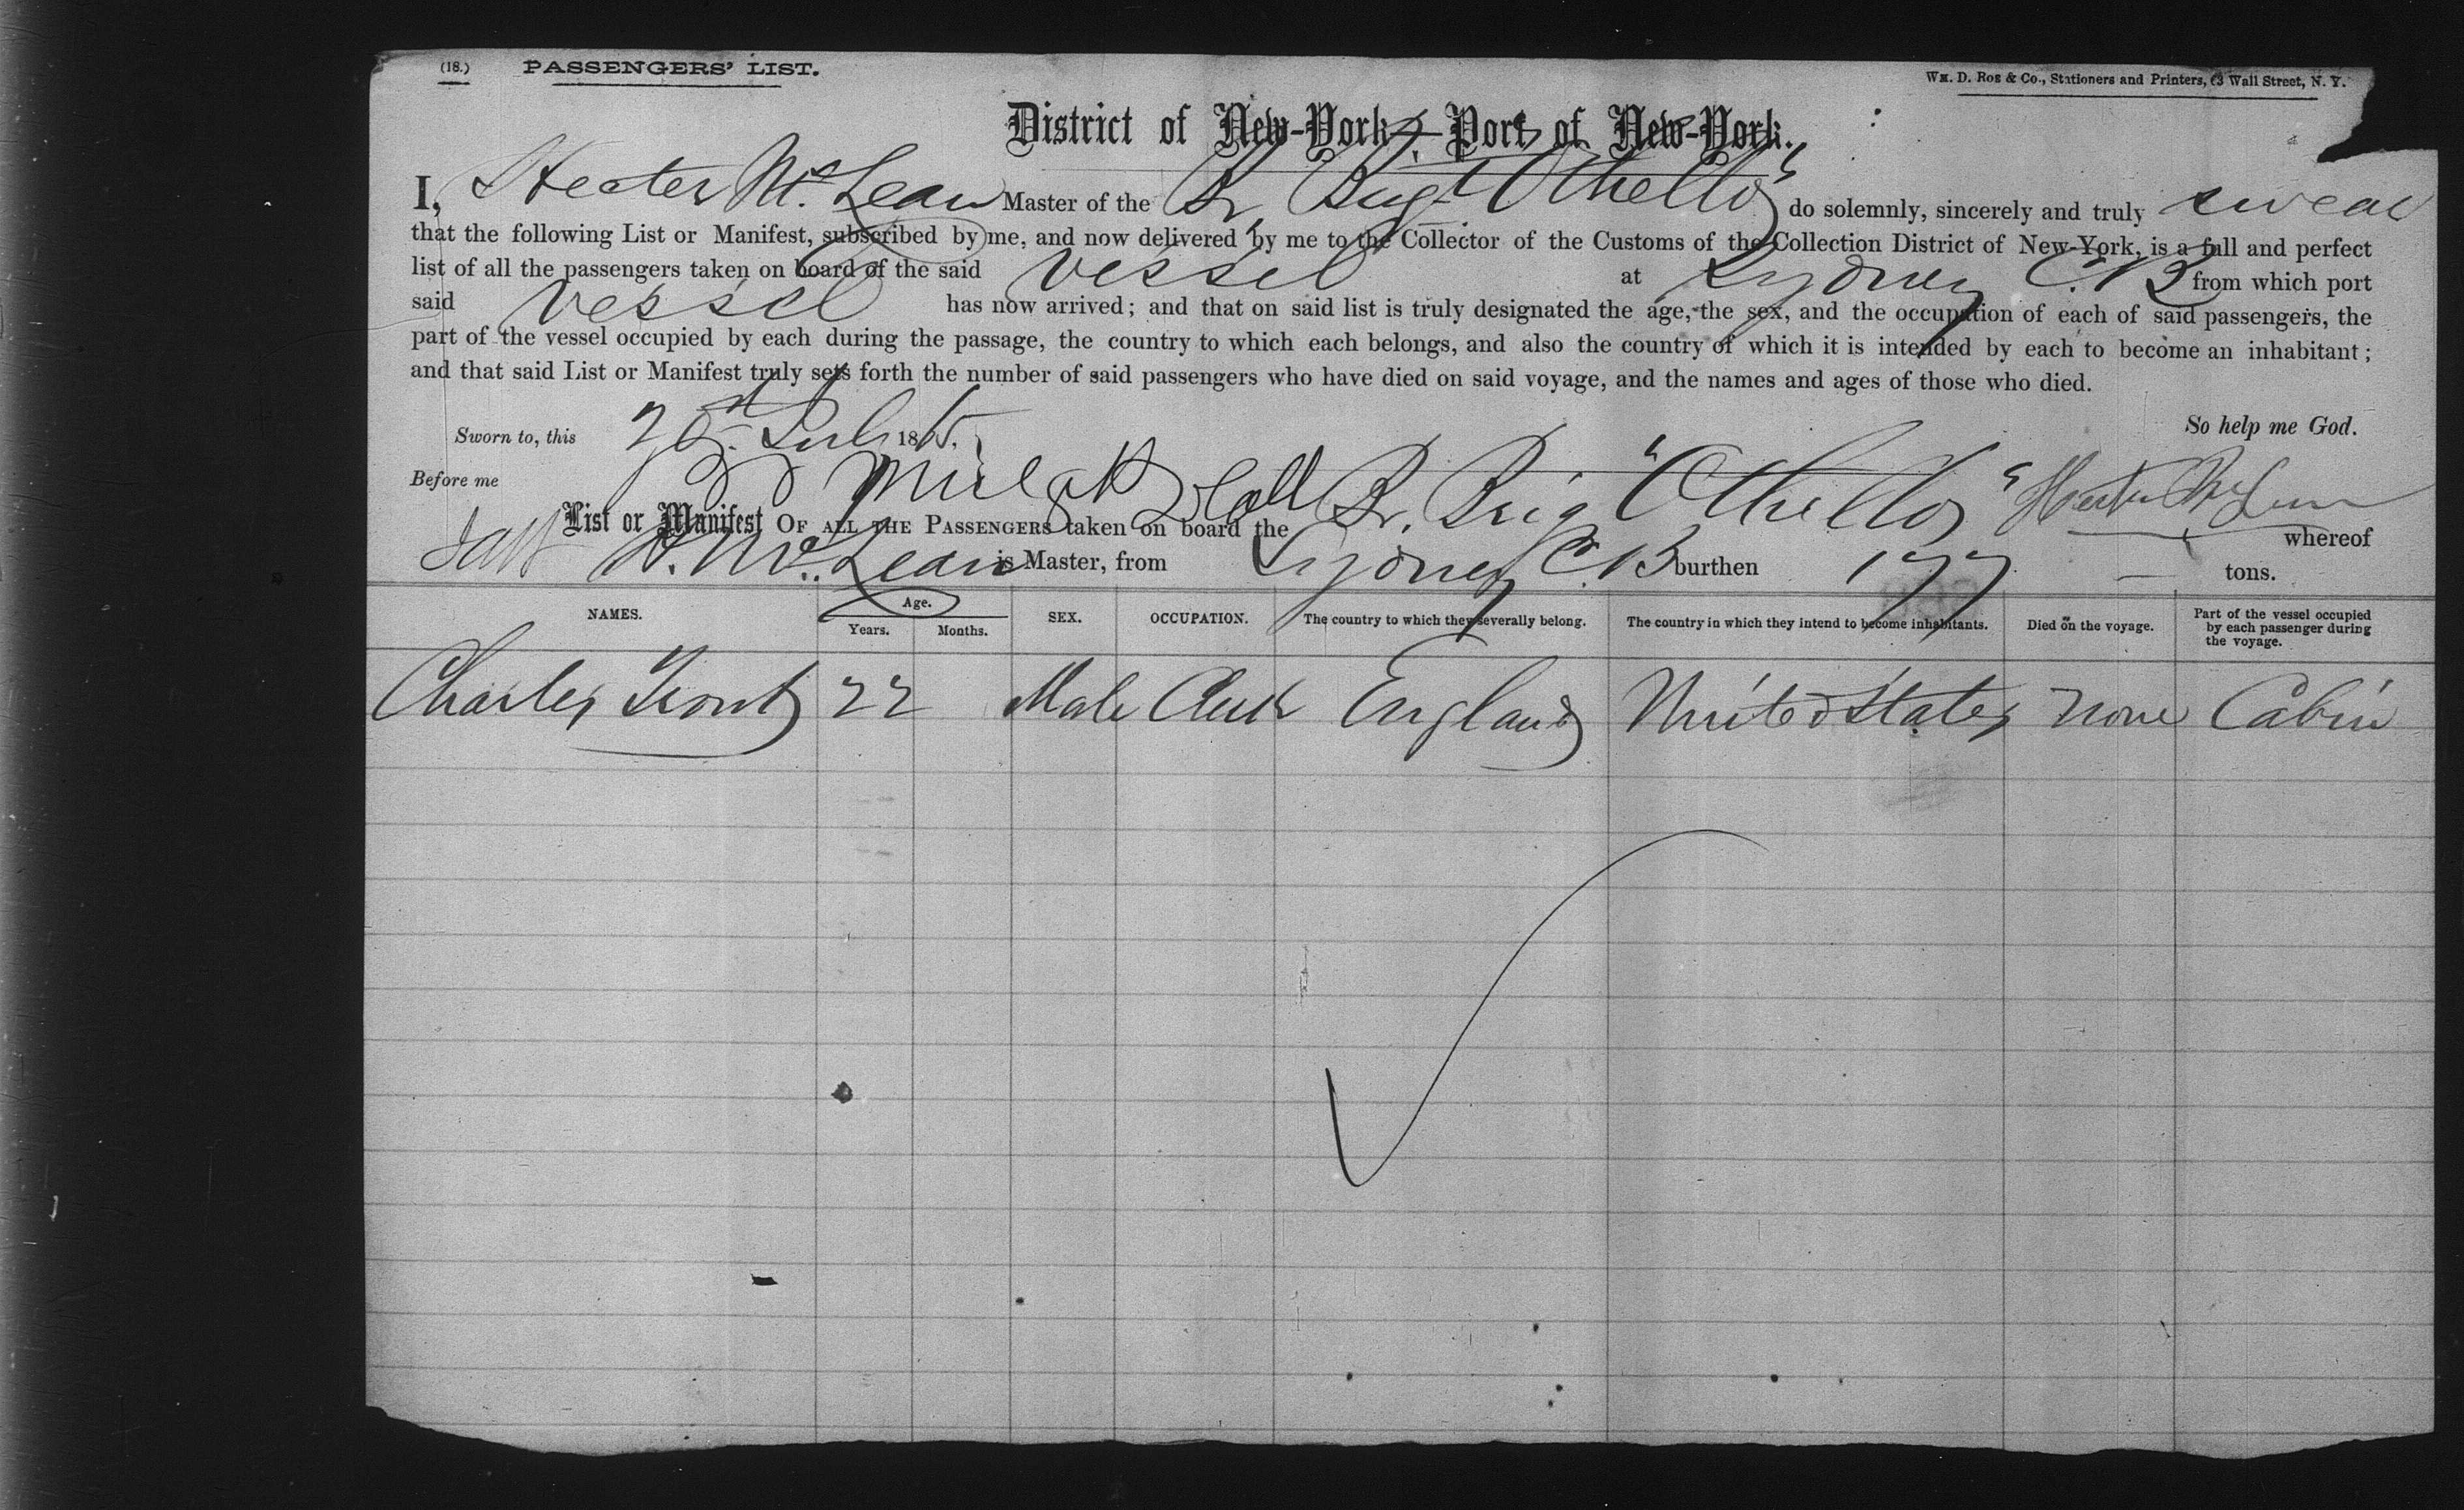 (18.) PASSENGERS' LIST.
WM. D. ROE & Co., Stationers and Printers, 63 Wall Street, N. Y.
District of New-York, Port of New-York.
I, Hecter McLean Master of the Br. Brig "Othello" do solemnly, sincerely and truly swear
that the following List or Manifest, subscribed by me, and now delivered by me to the Collector of the Customs of the Collection District of New-York, is a full and perfect
list of all the passengers taken on board of the said vessel at Sydney C.B from which port
said vessel has now arrived; and that on said list is truly designated the age, the sex, and the occupation of each of said passengers, the
part of the vessel occupied by each during the passage, the country to which each belongs, and also the country of which it is intended by each to become an inhabitant;
and that said List or Manifest truly sets forth the number of said passengers who have died on said voyage, and the names and ages of those who died.
Sworn to, this July 1865. So help me God.
Before me Hecter McLean
List or Manifest OF ALL THE PASSENGERS taken on board the Br. Brig "Othello" whereof
H. McLean is Master, from Sydney C.B burthen 177 tons.
NAMES. Age. Years. Months. SEX. OCCUPATION. The country to which they severally belong. The country in which they intend to become inhabitants. Died on the voyage. Part of the vessel occupied by each passenger during the voyage.
Charles 22 Male Clerk England United States none Cabin